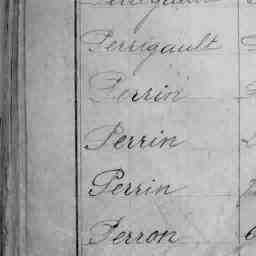 Perrigault
Perrin
Perrin
Perrin
Perron